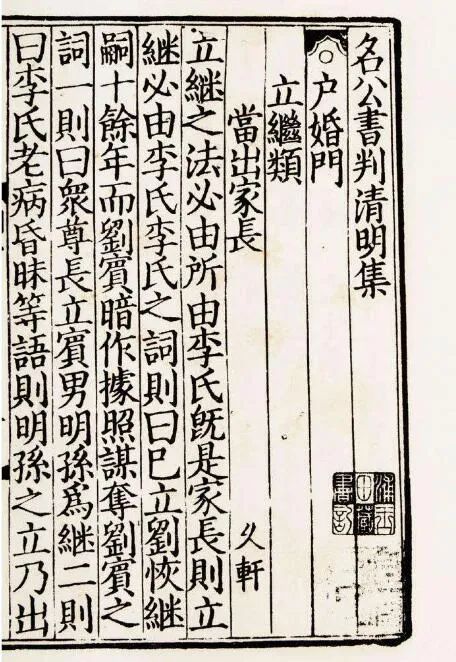 名公書判清明集
户婚門
立繼類
當出家長 久軒
立継之法必由所由李氏旣是家長則立
継必由李氏李氏之詞則曰巳立劉恢継
嗣十餘年而劉賓暗作據照謀奪劉賓之
詞一則曰衆尊長立賓男明孫爲継二則
曰李氏老病昏昧等語則明孫之立乃出